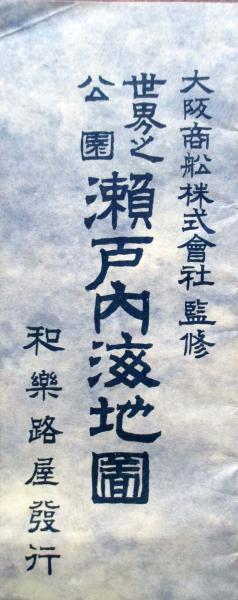 大阪商船株式會社監修
世界之公園
瀬戸内海地圖
和樂路屋發行